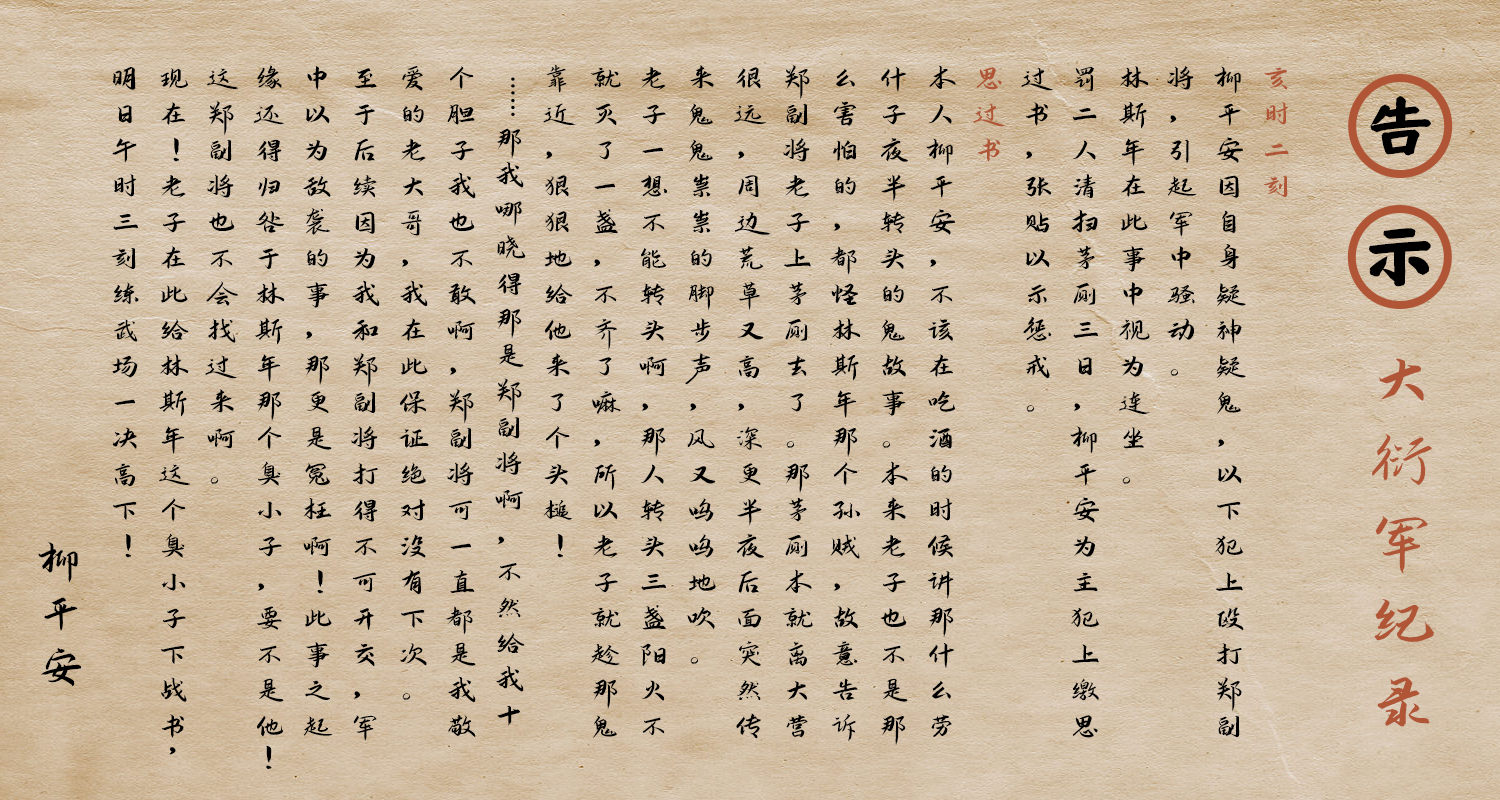 告示
大衍军纪录
亥时二刻
柳平安因自身疑神疑鬼，以下犯上殴打郑副
将，引起军中骚动。
林斯年在此事中视为连坐。
罚二人清扫茅厕三日，柳平安为主犯上缴思
过书，张贴以示惩戒。
思过书
本人柳平安，不该在吃酒的时候讲那什么劳
什子夜半转头的鬼故事。本来老子也不是那
么害怕的，都怪林斯年那个孙贼，故意告诉
郑副将老子上茅厕去了。那茅厕本就离大营
很远，周边荒草又高，深更半夜后面突然传
来鬼鬼祟祟的脚步声，风又呜呜地吹。
老子一想不能转头啊，那人转头三盏阳火不
就灭了一盏，不齐了嘛，所以老子就趁那鬼
靠近，狠狠地给他来了个头槌！
……那我哪晓得那是郑副将啊，不然给我十
个胆子我也不敢啊，郑副将可一直都是我敬
爱的老大哥，我在此保证绝对没有下次。
至于后续因为我和郑副将打得不可开交，军
中以为敌袭的事，那更是冤枉啊！此事之起
缘还得归咎于林斯年那个臭小子，要不是他！
这郑副将也不会找过来啊。
现在！老子在此给林斯年这个臭小子下战书，
明日午时三刻练武场一决高下！
柳平安